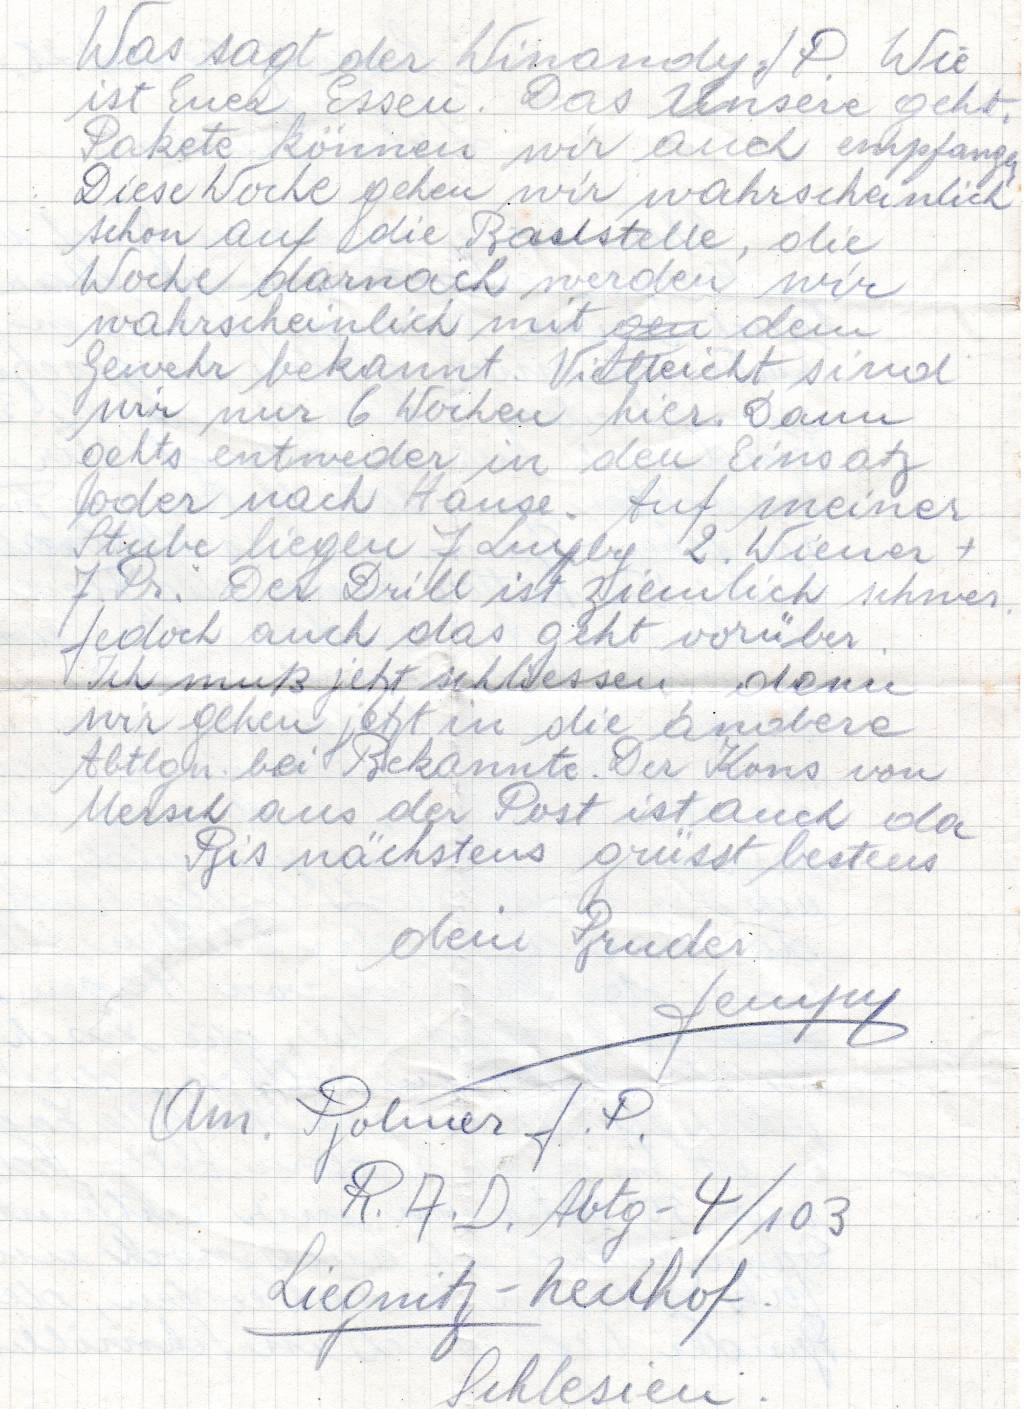 Was sagt der Winandy J P. Wie
ist Euer Essen. Das Unsere geht.
Pakete können wir auch empfangen
Diese Woche gehen wir wahrscheinlich
schon auf die Baustelle, die
Woche darnach werden wir
wahrscheinlich mit dem
Gewehr bekannt. Vielleicht sind
wir nur 6 Wochen hier. Dann
gehts entweder in den Einsatz
oder nach Hause. Auf meiner
Stube liegen 7 Luxbg 2. Wiener +
7. Pr. Der Drill ist ziemlich schwer.
Jedoch auch das geht vorüber.
Ich muß jetzt schliessen denn
wir gehen jetzt in die andere
Abtlgn. bei Bekannte. Der Kons von
Mersch aus der Post ist auch da
Bis nächstens grüsst bestens
dein Bruder
Jempy
Am. Bohner J. P.
R. A. D. Abtg - 4/103
Liegnitz - Neuhof.
Schlesien.